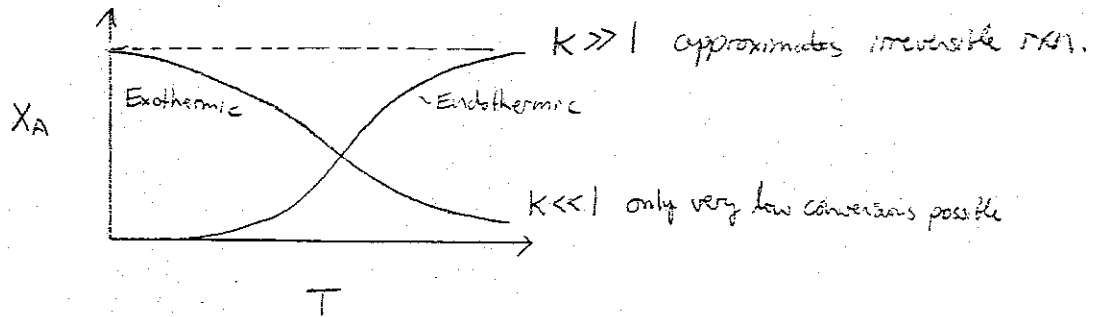 K >> 1 approximates irreversible rxn.
Exothermic
Endothermic
XA
K << 1 only very low conversions possible
T